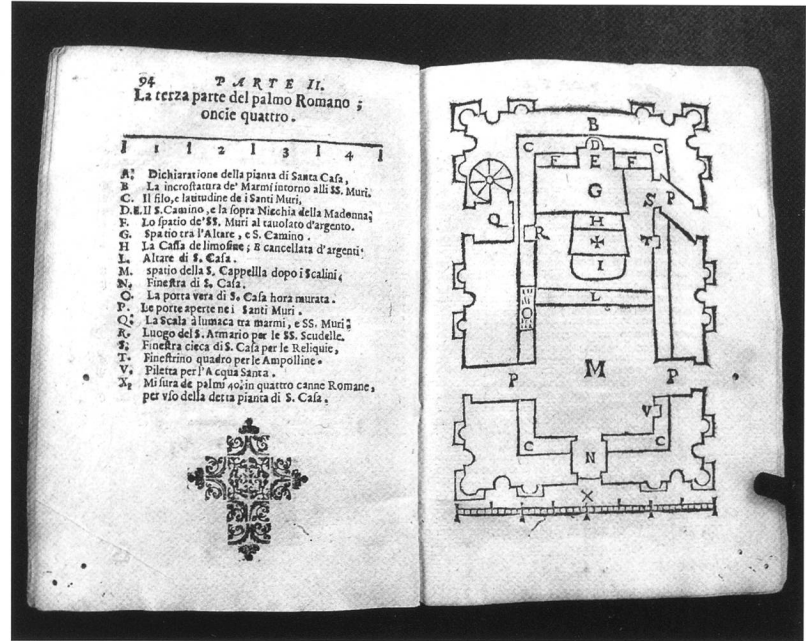 94 PARTE II.
La terza parte del palmo Romano ;
oncie quattro .
1 1 2 3 4
A. Dichiaratione della pianta di Santa Casa,
B La incrostatura de' Marmi intorno alli SS. Muri.
C. Il filo, e latitudine de i Santi Muri,
D.E. Il S. Camino, e la sopra Nicchia della Madonna;
F. Lo spatio de'SS. Muri al tauolato d'argento.
G. Spatio tra l'Altare, e S. Camino.
H La Cassa de limosine; E cancellata d'argenti.
L. Altare di S. Casa.
M. spatio della S. Cappellla dopo i Scalini,
N. Finestra di S. Casa.
O. La porta vera di S. Casa hora murata.
P. Le porte aperte ne i Santi Muri.
Q. La Scala à lumaca tra marmi, e SS. Muri:
R. Luogo del S. Armario per le SS. Scudelle.
S. Finestra cieca di S. Casa per le Reliquie,
T. Finestrino quadro per le Ampolline.
V. Piletta per l'Acqua Santa.
X. Misura de palmi 40. in quattro canne Romane,
per vso della detta pianta di S. Casa.
B
C D C
F E F
G S P
Q H
R T
I
L
O
P M P
V
C N C
X